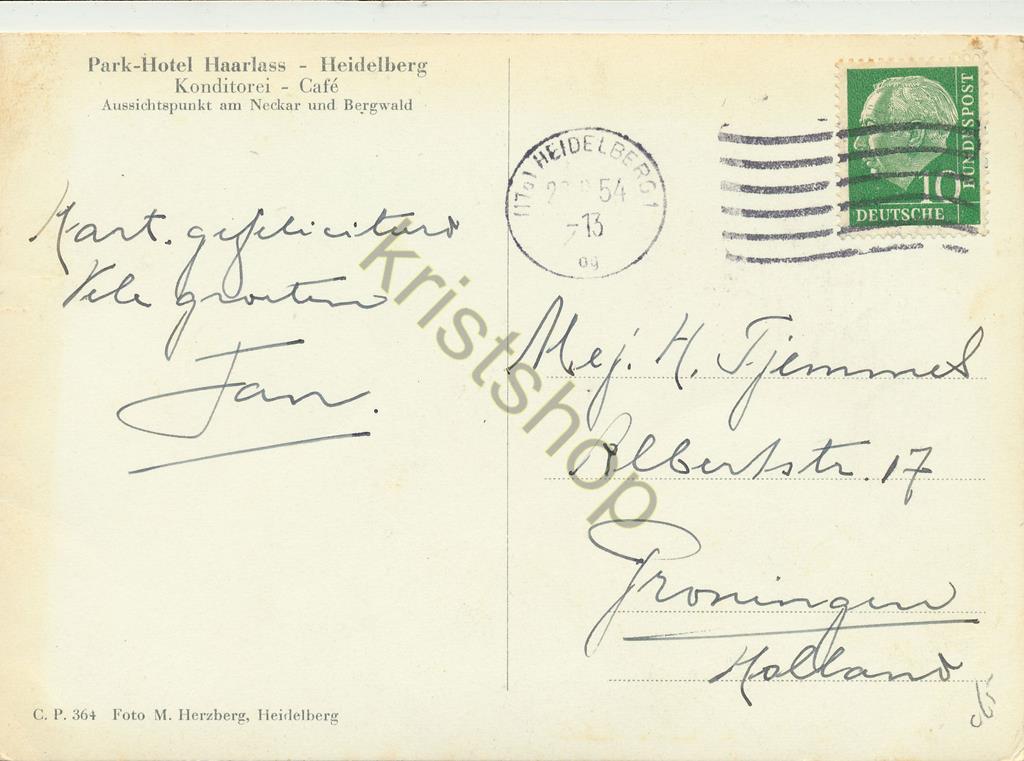 Park-Hotel Haarlass - Heidelberg
Konditorei - Café
Aussichtspunkt am Neckar und Bergwald
Hart. gefeliciteerd
Vele groeten
Jan.
C. P. 364 Foto M. Herzberg, Heidelberg
(17a) HEIDELBERG 1
54
-13
09
10
DEUTSCHE
BUNDESPOST
Mej. H. Tjemmes
Albertstr. 17
Groningen
Holland
kristshop